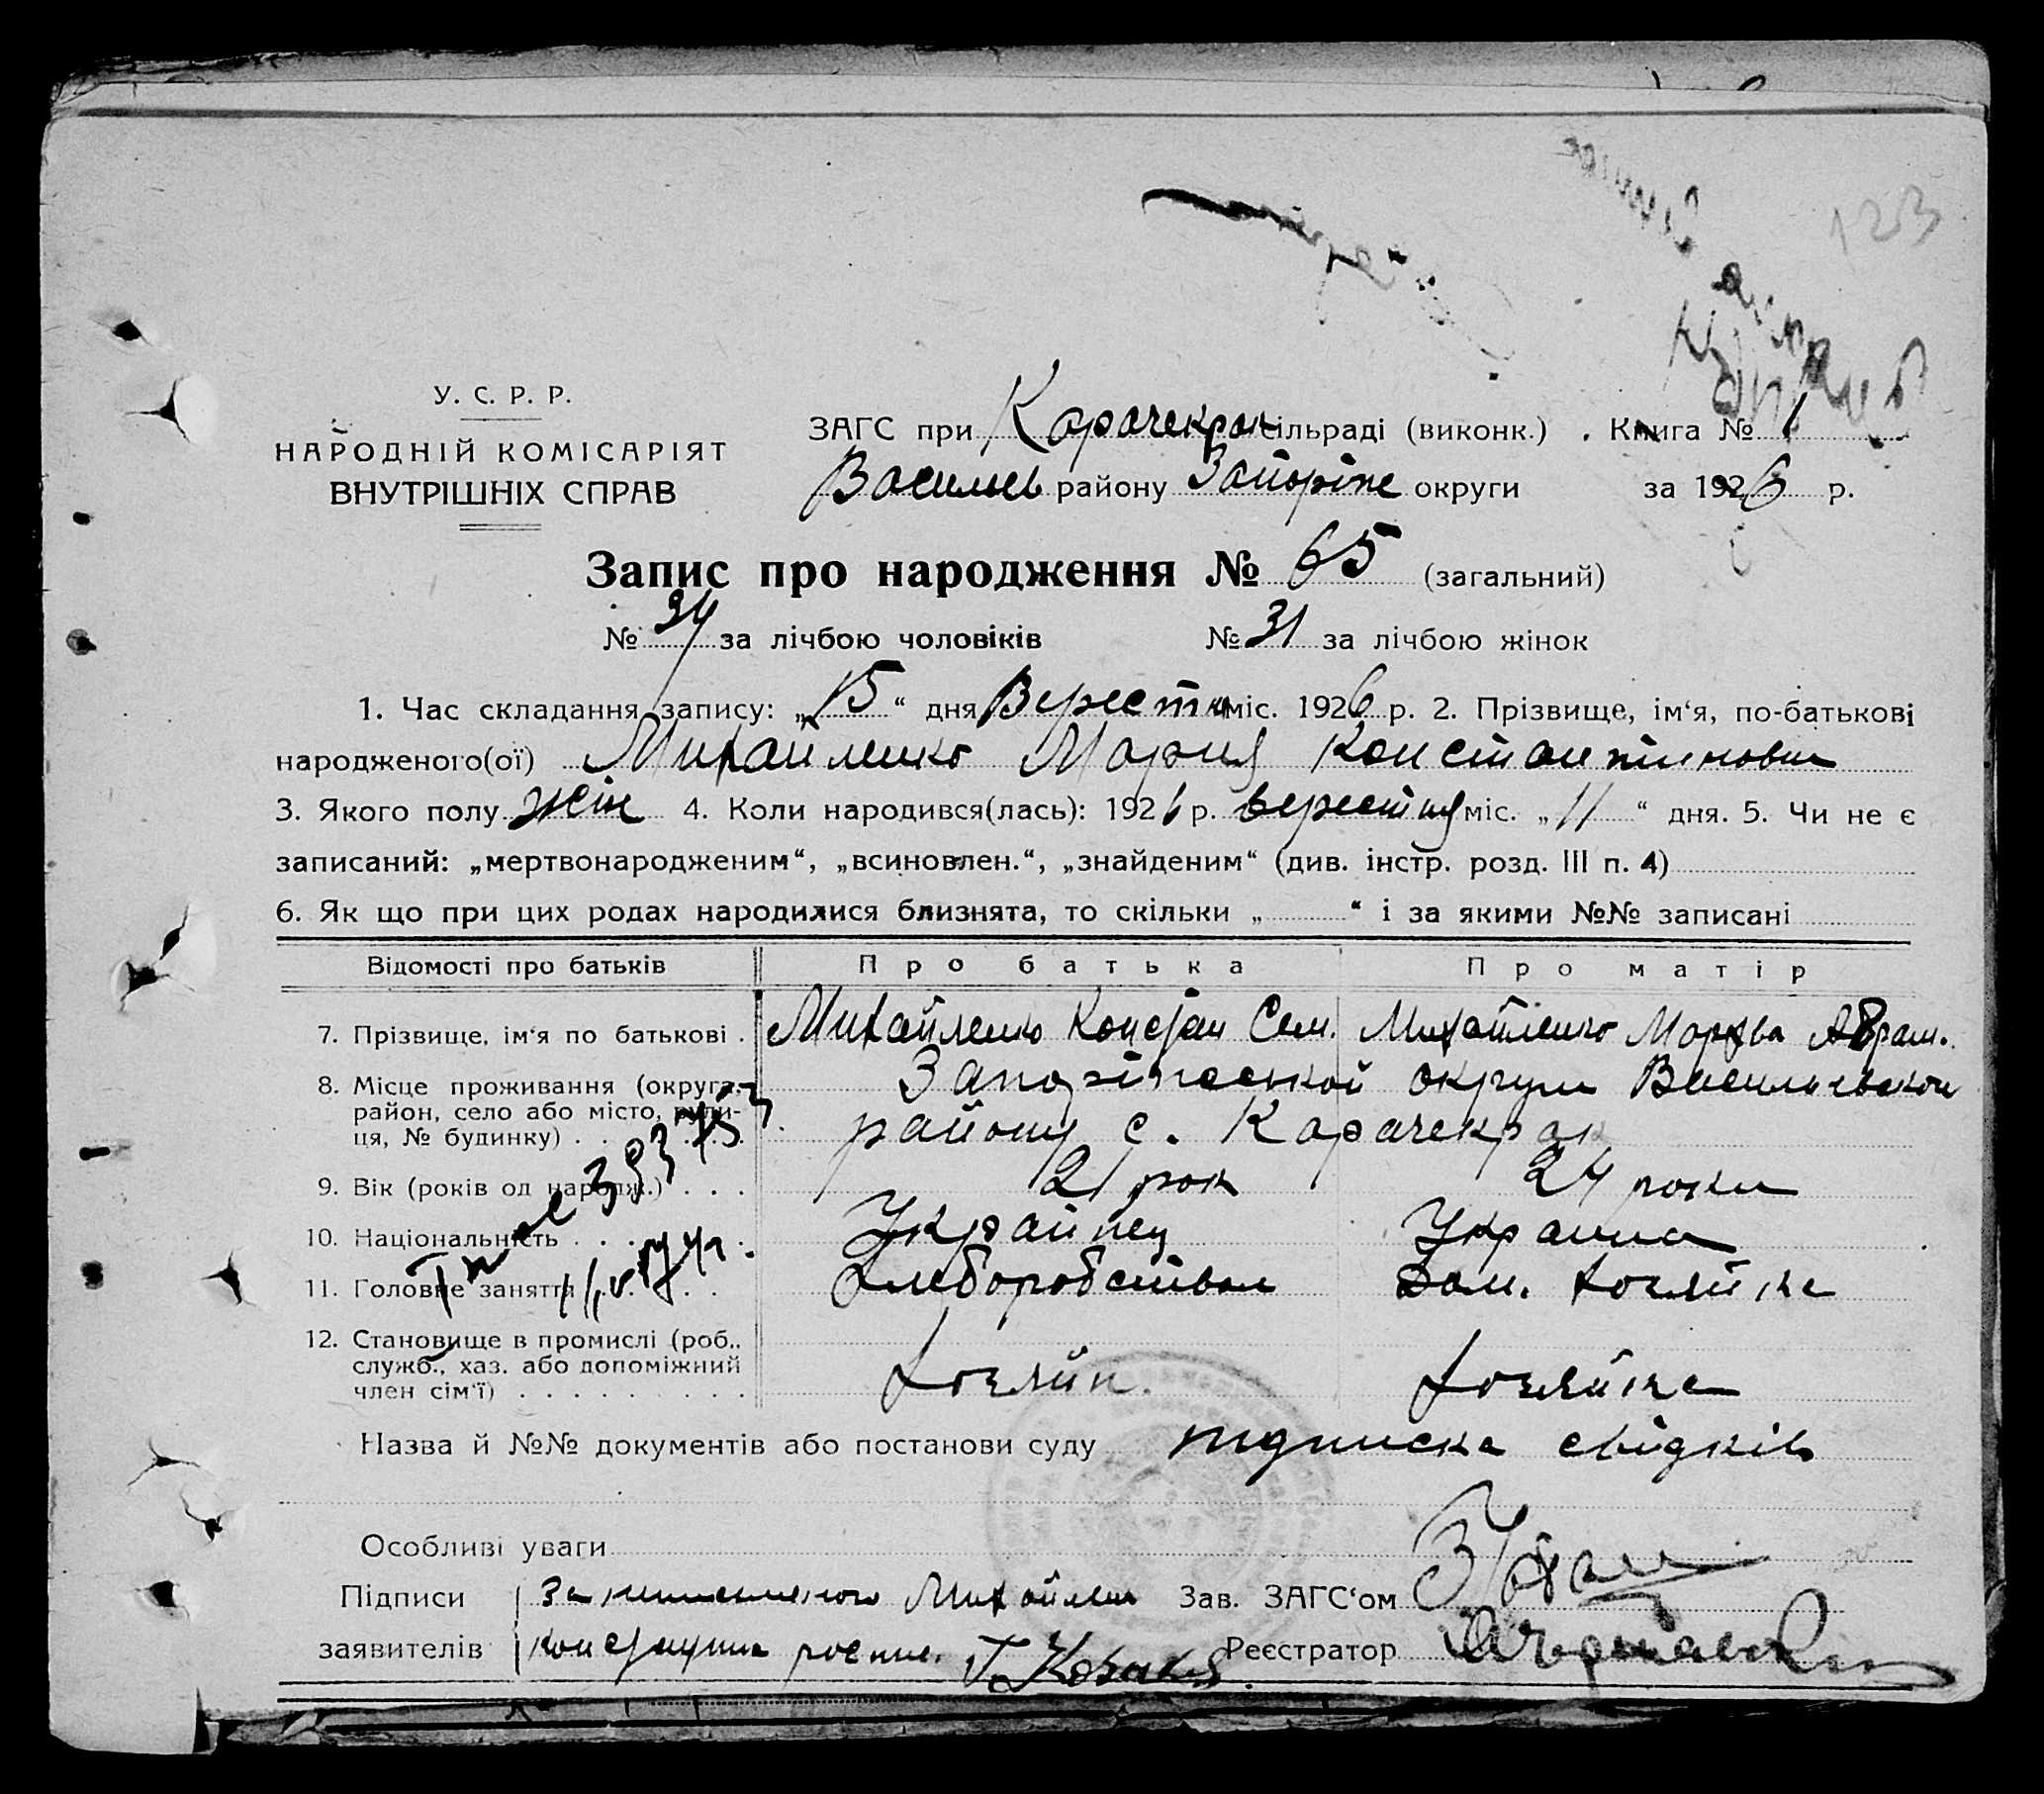 123
У. С. Р. Р.
НАРОДНІЙ КОМІСАРІЯТ
ВНУТРІШНІХ СПРАВ
ЗАГС при Карачекрак сільраді (виконк.) Книга № 1
Васильев району Запоріже округи за 1926 р.
Запис про народження № 65 (загальний)
№ 34 за лічбою чоловіків № 31 за лічбою жінок
1. Час складання запису: „15“ дня Верестня міс. 1926 р. 2. Прізвище, ім‘я, по-батькові
народженого(ої) Михайленко Мария Константиновна
3. Якого полу жін 4. Коли народився(лась): 1926 р. верестня міс. „11“ дня. 5. Чи не є
записаний: „мертвонародженим“, „всиновлен.“, „знайденим“ (див. інстр. розд. III п. 4)
6. Як що при цих родах народилися близнята, то скільки „ “ і за якими №№ записані
Відомості про батьків Про батька Про матір
7. Прізвище, ім‘я по батькові . Михайленко Констан Сем. Михайленко Абрам.
8. Місце проживання (округа, Запоріжської округи Васильевской
район, село або місто, вули-
ця, № будинку) . . . району с. Карачекрак
9. Вік (років од народж.) . . . 21 рок 24 роки
10. Національність . . . Українец Украинка
11. Головне заняття . . . Хлеборобством Дом. хозяйка
12. Становище в промислі (роб.,
служб., хаз. або допоміжний
член сім‘ї) . . . . . . . . . Хозяйн. хозяйка
Назва й №№ документів або постанови суду підписка свідків
Особливі уваги
Підписи За неписьменного Михайлен Зав. ЗАГС‘ом
заявителів Констянтина роспис. Реєстратор